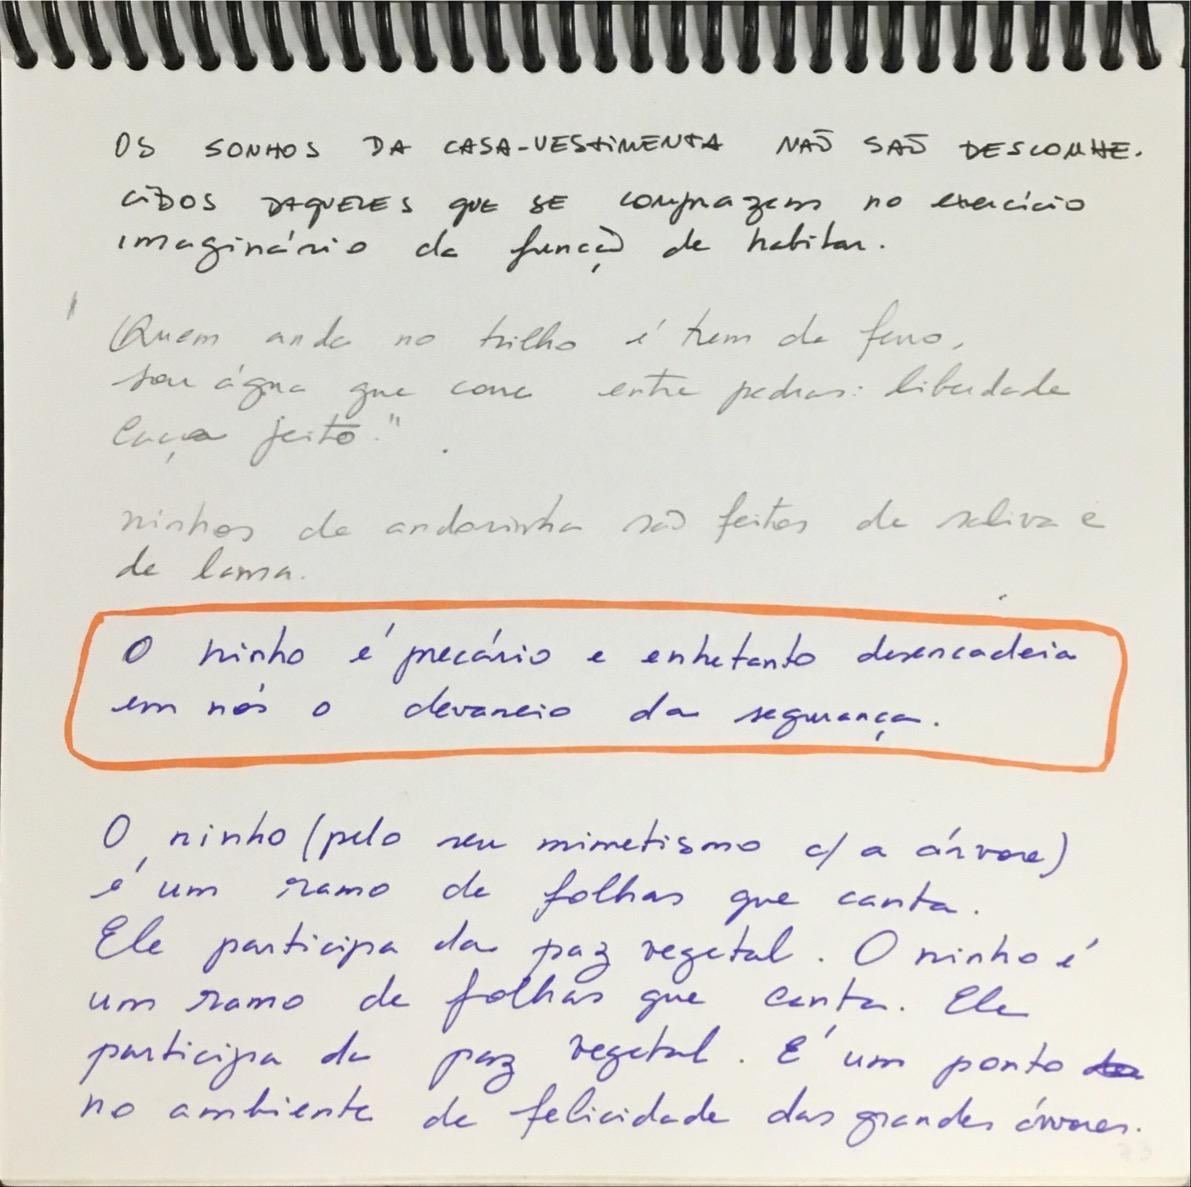 OS SONHOS DA CASA-VESTIMENTA NÃO SÃO DESCONHE-
CIDOS DAQUELES QUE SE comprazem no exercício
imaginário da função de habitar.
"Quem anda no trilho é trem de ferro,
sou água que corre entre pedras: liberdade
caça jeito."
ninhos de andorinha são feitos de saliva e
de lama.
O ninho é precário e entretanto desencadeia
em nós o devaneio da segurança.
O ninho (pelo seu mimetismo c/ a árvore)
é um ramo de folhas que canta.
Ele participa da paz vegetal. O ninho é
um ramo de folhas que canta. Ele
participa da paz vegetal. É um ponto
no ambiente de felicidade das grandes árvores.